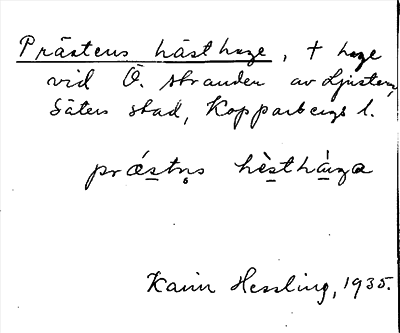 Prästens hästhage, † hage
vid Ö. stranden av Ljustern,
Säters stad, Kopparbergs l.
præ̀stn̥s hɛ̀sthàga
Karin Hessling, 1935.